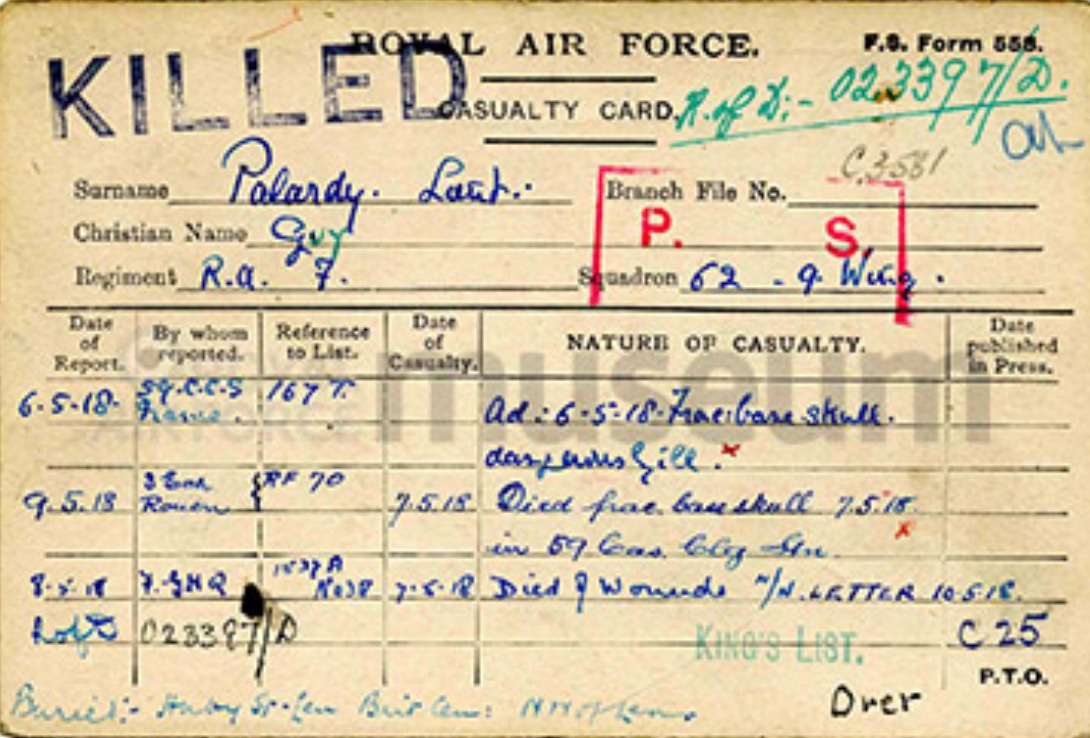 KILLED
ROYAL AIR FORCE.
F.S. Form 558.
CASUALTY CARD.
R. of D:- 023397/D.
C.3581
Surname Palardy. Lieut.
Branch File No.
Christian Name Guy
P. S.
Regiment R.a. F.
Squadron 62 - 9 Wing.
Date of Report.
By whom reported.
Reference to List.
Date of Casualty.
NATURE OF CASUALTY.
Date published in Press.
museum
6-5-18. 59.C.C.S France. 167 T. Ad: 6-5-18. Frac: base skull.
dangerously ill. x
9.5.18 Rouen RF 70 7.5.18 Died frac. base skull 7.5.18.
in 59 Cas. Clg Stn. x
8-5-18 F.GHQ 7-5-18 Died of Wounds N/H. LETTER 10.5.18.
023397/D
KING'S LIST.
C 25
P.T.O.
Buried:-
Over